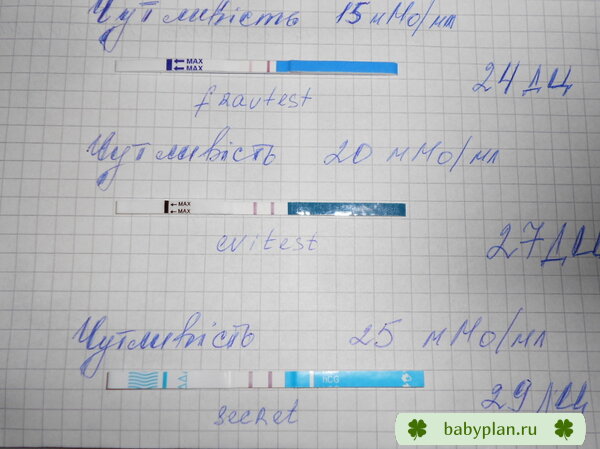 Чутливість 15 мМо/мл
MAX
MAX
24 ДЦ
frautest
Чутливість 20 мМо/мл
MAX
MAX
evitest
27 ДЦ
Чутливість 25 мМо/мл
hCG
secret
29 ДЦ
babyplan.ru